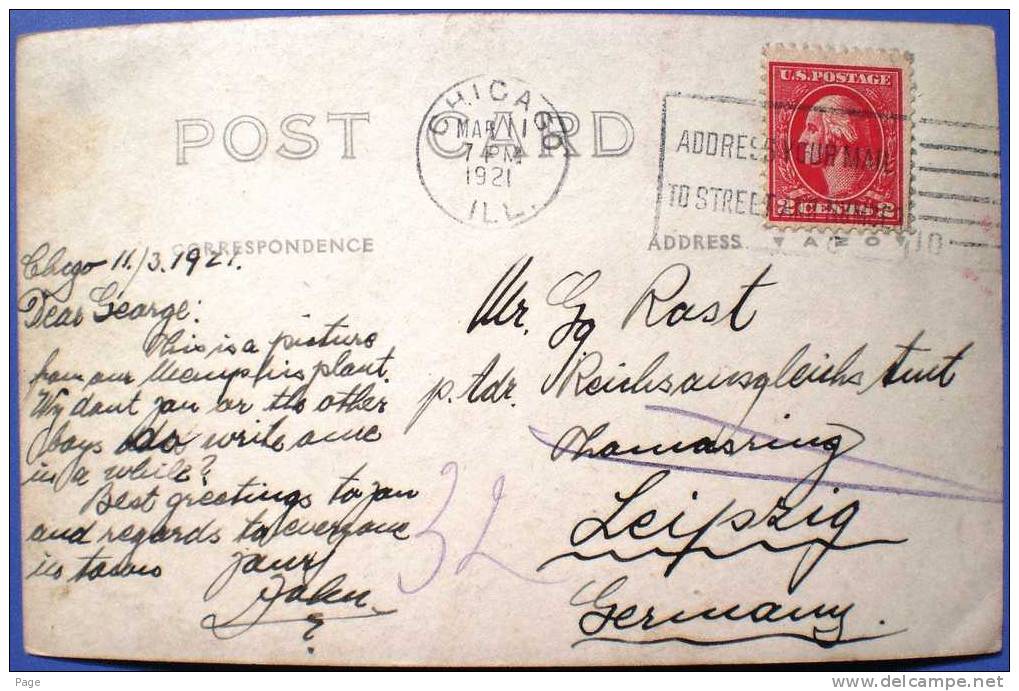 POST CARD
CHICAGO
MAR 11
7 PM
1921
ILL.
U.S. POSTAGE
2 CENTS 2
ADDRESS YOUR MAIL
TO STREET
CORRESPONDENCE
ADDRESS
Chgo 11/3. 1921.
Dear George:
This is a picture
from our Memphis plant.
Wy dont you or the other
boys do write once
in a while?
Best greetings to you
and regards to everyone
in town
yours
John
Mr. Gg Rast
p. Adr. Reichsausgleichs Amt
Thomasring
Leipzig
Germany.
32
Page
www.delcampe.net